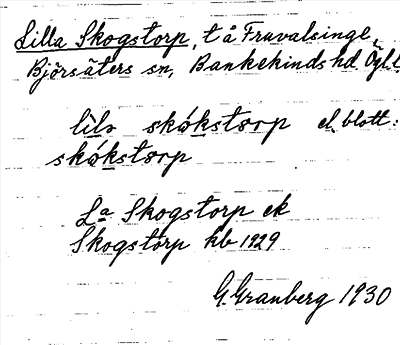 Lilla Skogstorp, t å Fruvalsinge,
Björsäters sn, Bankekinds hd Ögl.
lìlɔ skókstɔrp el. blott:
skókstɔrp
La Skogstorp ek
Skogstorp hb 1929
G. Granberg 1930